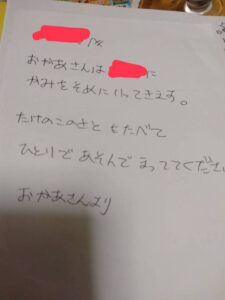 へ
おかあさんは に
かみをそめにいってきます。
たけのこのさと をたべて
ひとりで あそんで まっててくださ
おかあさんより